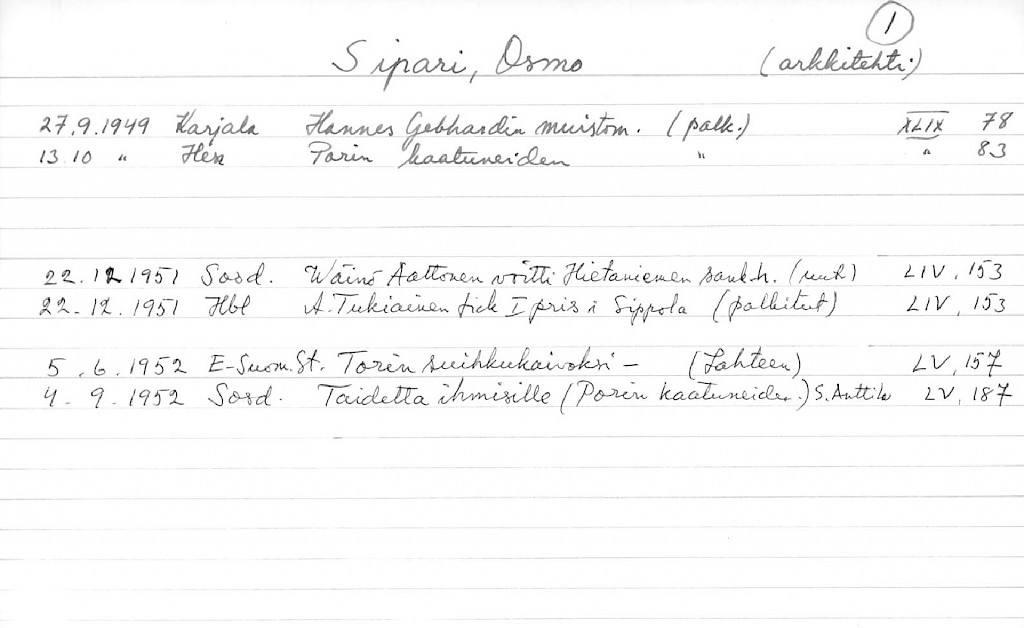 1
Sipari, Osmo (arkkitehti)
27.9.1949 Karjala Hannes Gebhardin muistom. (palk.) XLIX 78
13.10 " Porin kaatuneiden " " 83
22.12.1951 Sosd. Wäinö Aaltonen voitti Hietaniemen sankh. (muk) LIV, 153
22.12.1951 Hbl A. Tukiainen fick I pris i Sippola (palkitut) LIV, 153
5.6.1952 E-Suom.St. Torin suihkukaivoksi – (Lahteen) LV, 157
4.9.1952 Sosd. Taidetta ihmisille (Porin kaatuneiden.) S. Anttila LV, 187